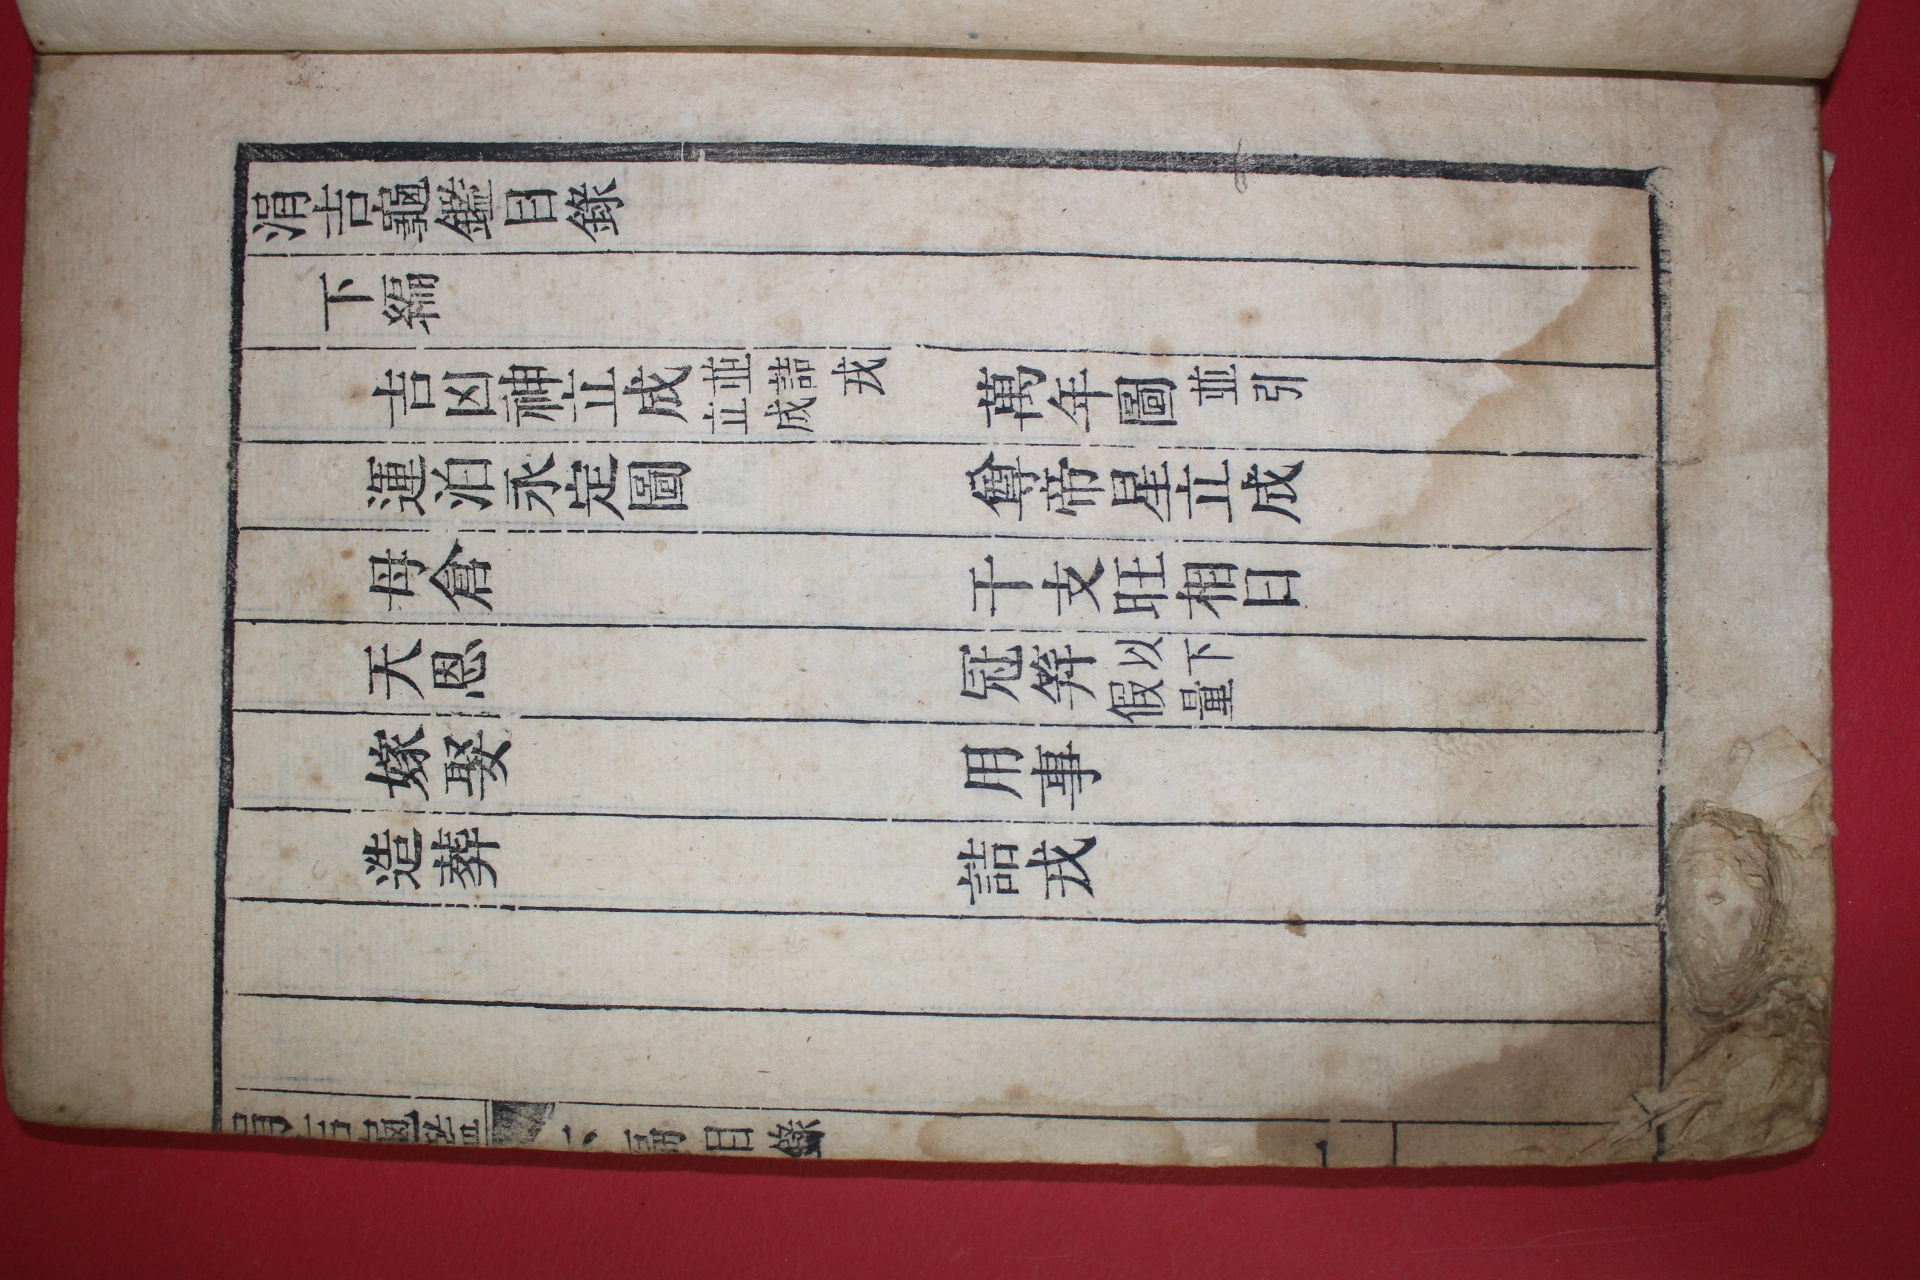 涓吉龜鑑目錄
下編
吉凶神立成 並詰戎立成 萬年圖 並引
運泊永定圖 尊帝星立成
母倉 干支旺相日
天恩 冠筓 以下假量
嫁娶 用事
造葬 詰戎
涓吉龜鑑 下編目錄